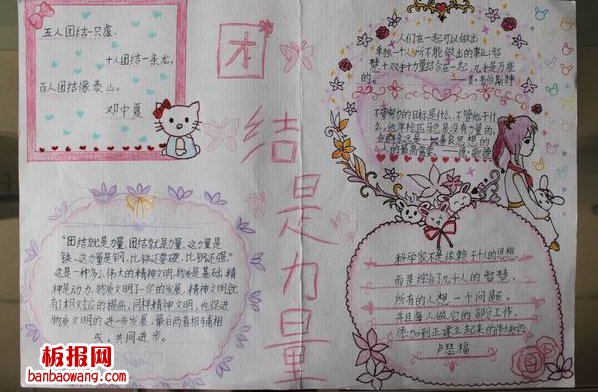 五人团结一只虎,
十人团结一条龙,
百人团结像泰山。
邓中夏
团
结
是
力
量
人们在一起可以做出
单独一个人所不能做出的事业;智
慧+双手+力量结合在一起,几乎是万能
的。
不管努力的目标是什么,不管他干什
么,他单枪匹马总是没有力量的,
思想的
人的最高需要
"团结就是力量,团结就是力量,这力量是
铁,这力量是钢,比铁还要硬,比钢还强"
这是一种多么伟大的精神文明,物质是基础,精
神是动力,物质文明了一定的发展,精神文明就
有相对应的提高,同样精神文明,也促进
物质文明的进一步发展,最后两者相辅相
成,共同进步。
科学家不是依赖于个人的思想,
而是综合了几千人的智慧,
所有的人想一个问题,
并且每人做它的部分工作,
添加到正建立起来的伟大知识
卢瑟福
板报网
banbaowang.com